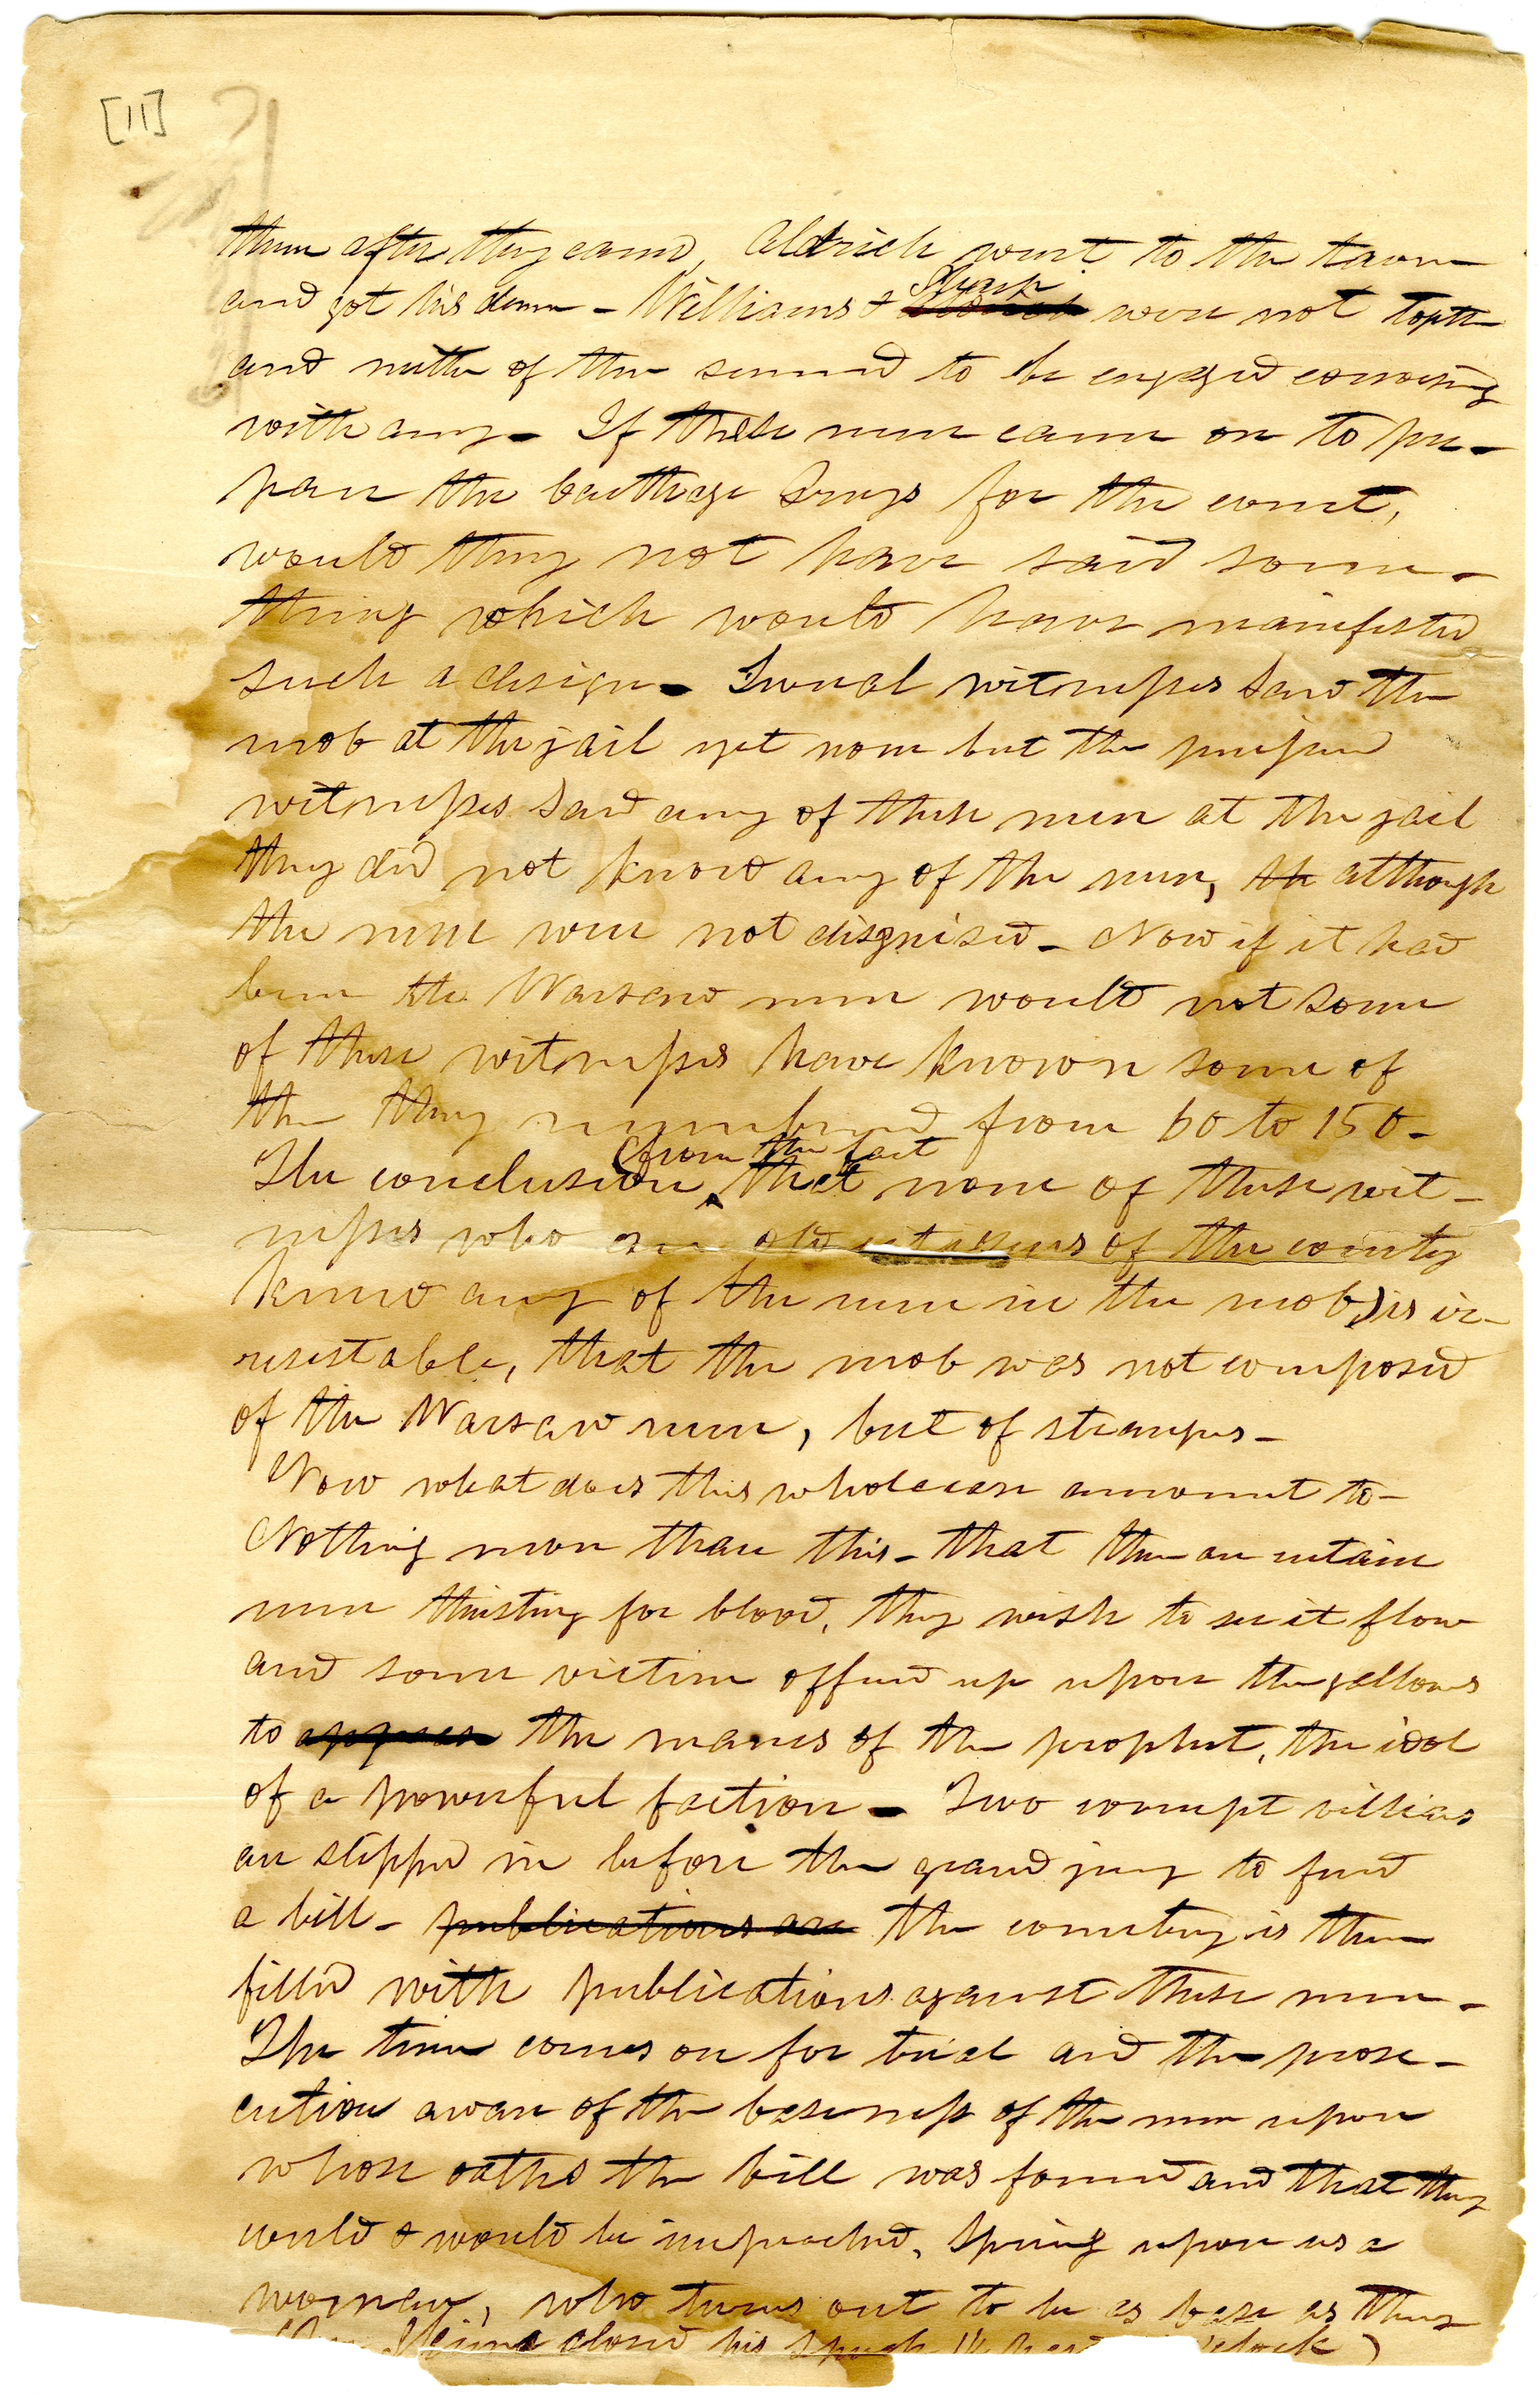 [11]
them after they came, Aldrich went to the tavern
and got his dinner - Williams & Sharp were not togeth
and neither of them seemed to be engaged conversing
with any - If these men came on to pre-
pare the Carthage Greys for the event,
would they not have said some-
thing which would have manifested
such a design - Several witnesses saw the
mob at the jail yet none but the perjured
witnesses saw any of these men at the jail
they did not know any of the men, th although
the men were not disguised - Now if it had
been the Warsaw men would not some
of these witnesses have known some of
them they numbered from 60 to 150 -
(from the fact
The conclusion that none of these wit-
nesses who are old citizens of the county
knew any of the men in the mob) is ir-
resistable, that the mob was not composed
of the Warsaw men, but of strangers -
Now what does this whole case amount to -
Nothing more than this - that there are certain
men thirsting for blood, they wish to see it flow
and some victim offered up upon the gallows
to appease the manes of the prophet, the idol
of a powerful faction - Two corrupt villians
are slipped in before the grand jury to find
a bill - publications are the country is then
filled with publications against these men -
The time comes on for trial and the prose-
cution aware of the baseness of the men upon
whose oaths the bill was found and that they
could & would be impeached, spring upon us a
woman, who turns out to be as base as they
closed his speech o'clock)